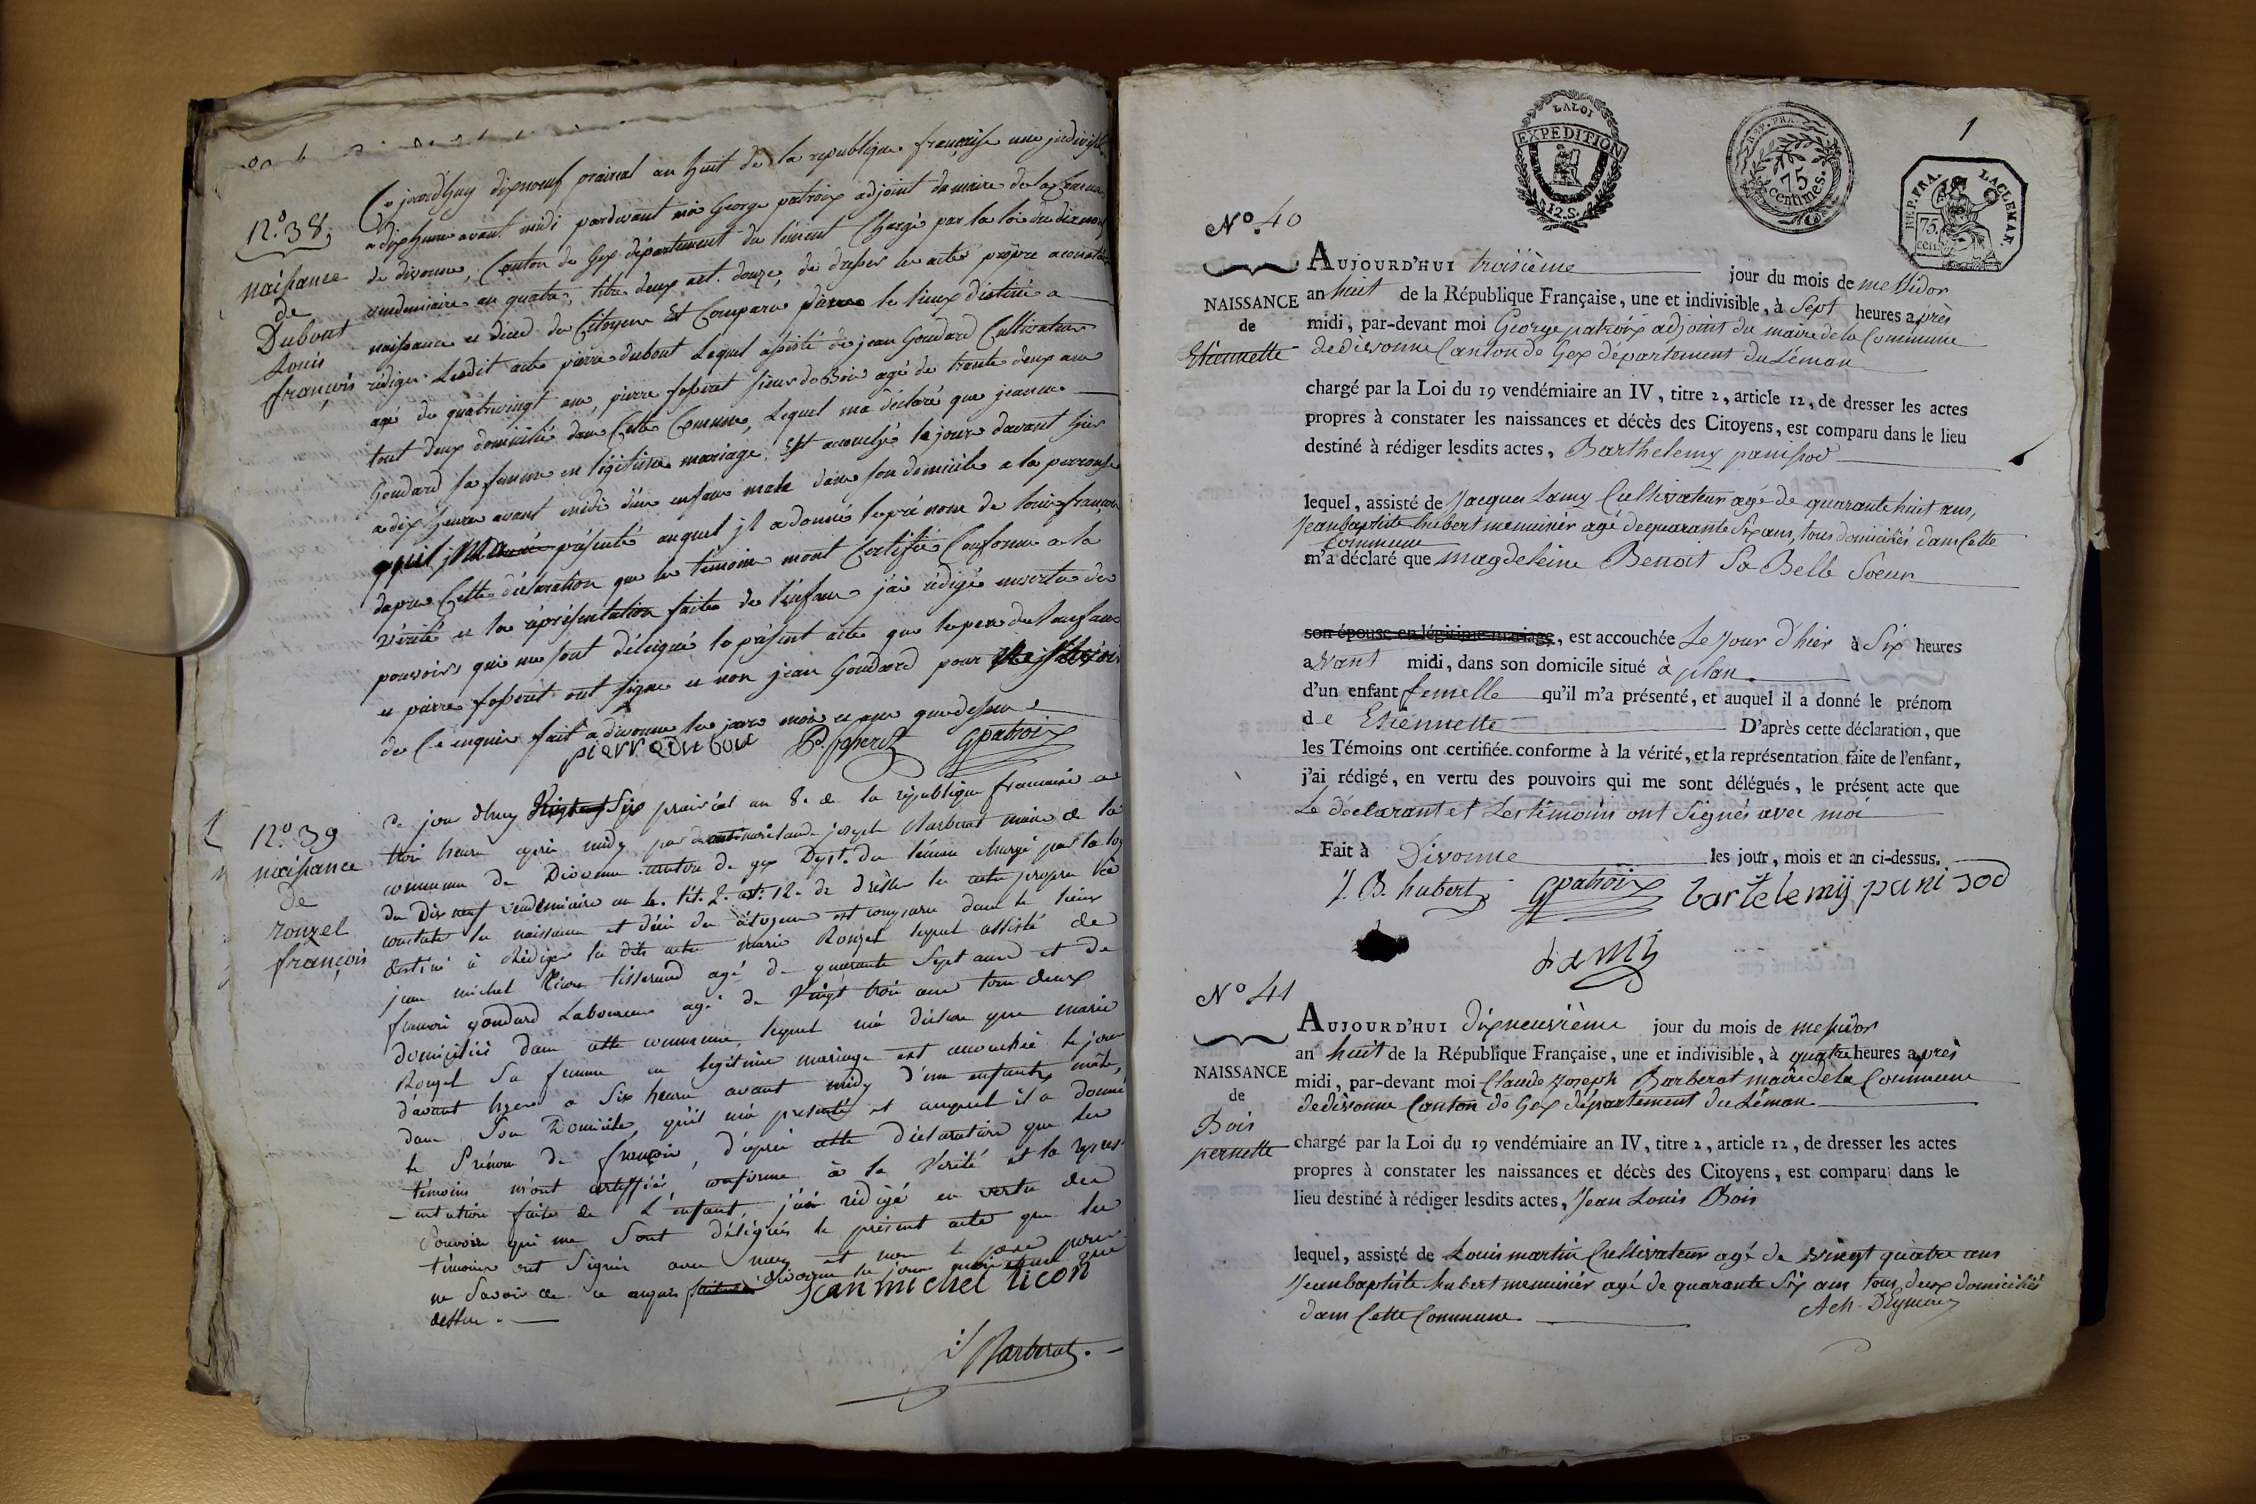 N.o 38,
naissance
de
Dubout
Louis
françois
Ce jourdhuy dixneuf prairial an huit de la republique française une indivisible
a dix heure avant midi pardevant moi George patroix adjoint du maire de la Commune
de divonne, Canton de Gex département du lément Chargé par la loi du dixneuf
vendemiaire an quatre, titre deux art. douze, de dresser les actes propre a constater
naissance et deced des Citoyens Est Comparu dans le lieux destiné a
rédiger lesdit acte pierre dubout Lequel assisté de jean Goudard Cultivateur
agé de quatrevingt ans, pierre fosseret sieur de Bois agé de trente deux ans
tout deux domicilié dans Cette Commune, Lequel ma déclaré que jeanne
Goudard sa femme en légitime mariage Est acouchée le jour davant hier
a dix heure avant midi d'un enfant male dans son domicile a la
présenté auquel jl a donné le pré nom de louis françois
dapres Cette déclaration que les témoins mont Certifié Conforme a la
vérité et la répresentation faite de l'enfant j'ai rédigé en vertu des
pouvoirs qui me sont délégué le présent acte que le pere de lenfant
et pierre fosseret ont signe et non jean Goudard pour
de Ce enquis fait a divonne les jour mois et an que dessus
pierre dubout P. fosseret G patroix
N.o 39
naissance
de
rouzel
françois
Ce jour dhuy Six prairial an 8. de la république francaise a
trois heure après midy par devant moi Claude joseph Barberat maire de la
commune de Divonne canton de gex Dept. du léman chargé par la loy
du Dix neuf vendemiaire an 4. tit. 2. art. 12. de dresser les actes propre à
constater les naissances et décès des citoyens est comparu dans le lieux
destiné à rédiger les dits actes Rouzel lequel assisté de
jean michel tisserand agé de quarante Sept ans et de
francois goudard Laboureur agé de vingt trois ans tous deux
domiciliés dans cette commune, lequel m'a déclaré que marie
Rouzel Sa femme en legitime mariage est accouchée le jour
d'avant hyer a Six heure avant midy d'un enfant mâle,
dans Son Domicile, qu'il m'a presenté et auquel il a donné
le Prénom de francois, d'après cette déclaration que les
témoins m'ont certiffiés conforme à la Vérité et la repres-
-entation faite de L'enfant, j'ai rédigé en vertu des
Pouvoirs qui me Sont délégués le présent acte que les
témoins ont Signés avec moy et non le pere pour
ne Savoir de ce enquis divonne les jour mois et an que
dessus.
jean michel ticon
Barberat.
1
LA LOI
EXPEDITION
12.S.
REP. FRA.
75
centimes.
REP. FRA.
75.
cen.
N.o 40
NAISSANCE
de
Etiennette
AUJOURD'HUI troisième jour du mois de messidor
an huit de la République Française, une et indivisible, à Sept heures après
midi, par-devant moi George patroix adjoint du maire de la Commune
de divonne Canton de Gex département du Léman
chargé par la Loi du 19 vendémiaire an IV, titre 2, article 12, de dresser les actes
propres à constater les naissances et décès des Citoyens, est comparu dans le lieu
destiné à rédiger lesdits actes, Barthelemy panissod
lequel, assisté de Jacques Lamy Cultivateur agé de quarante huit ans,
Jean baptiste hubert menuisier agé de quarante Six ans, tous domiciliés dans Cette
Commune
m'a déclaré que magdeleine Benoit Sa Belle Soeur
son épouse en légitime mariage, est accouchée Le Jour d'hier à Six heures
avant midi, dans son domicile situé à plan
d'un enfant femelle qu'il m'a présenté, et auquel il a donné le prénom
de Etiennette D'après cette déclaration, que
les Témoins ont certifiée conforme à la vérité, et la représentation faite de l'enfant,
j'ai rédigé, en vertu des pouvoirs qui me sont délégués, le présent acte que
Le déclarant et Les témoins ont Signés avec moi
Fait à Divonne les jour, mois et an ci-dessus.
J. B. hubert G patroix bartelemy panisod
Lamy
N.o 41
NAISSANCE
de
Bois
pernette
AUJOURD'HUI dixneuvième jour du mois de messidor
an huit de la République Française, une et indivisible, à quatre heures après
midi, par-devant moi Claude Joseph Barberat maire de la Commune
de divonne Canton de Gex département du Léman
chargé par la Loi du 19 vendémiaire an IV, titre 2, article 12, de dresser les actes
propres à constater les naissances et décès des Citoyens, est comparu dans le
lieu destiné à rédiger lesdits actes, Jean Louis Bois
lequel, assisté de Louis martin Cultivateur agé de vingt quatre ans
Jean baptiste hubert menuisier agé de quarante Six ans tous deux domiciliés
dans Cette Commune